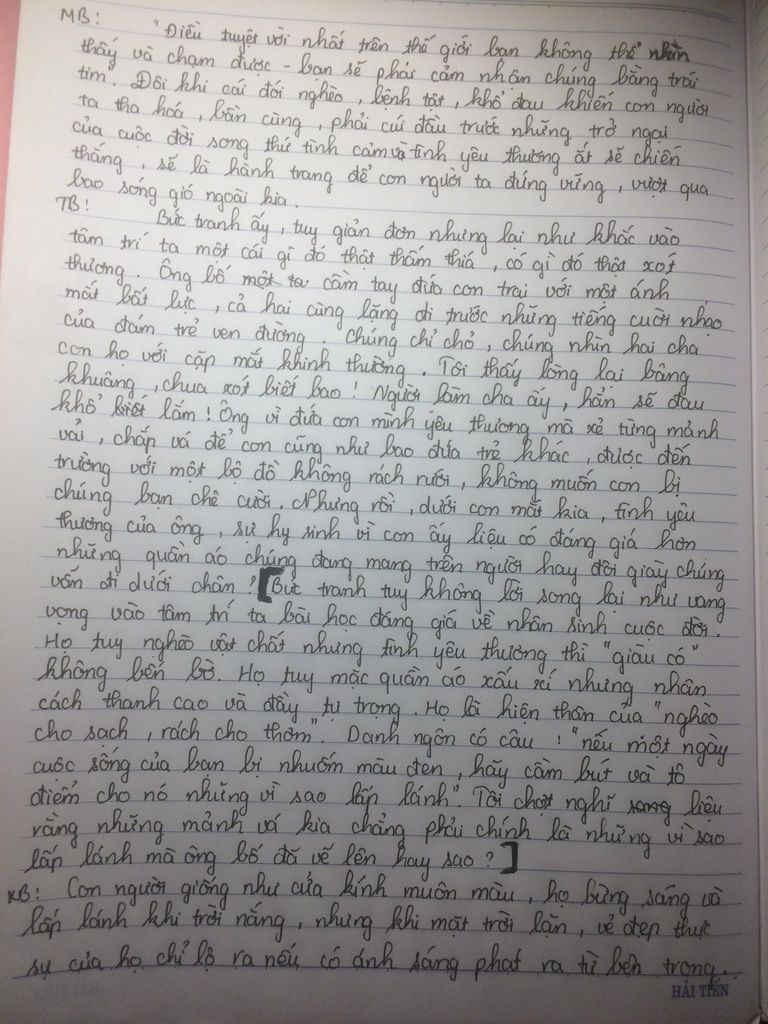 MB:
"Điều tuyệt vời nhất trên thế giới bạn không thể nhìn
thấy và chạm được - bạn sẽ phải cảm nhận chúng bằng trái
tim". Đôi khi cái đói nghèo, bệnh tật, khổ đau khiến con người
ta tha hoá, bần cùng, phải cúi đầu trước những trở ngại
của cuộc đời song thứ tình cảm và tình yêu thương ắt sẽ chiến
thắng, sẽ là hành trang để con người ta đứng vững, vượt qua
bao sóng gió ngoài kia.
TB:
Bức tranh ấy, tuy giản đơn nhưng lại như khắc vào
tâm trí ta một cái gì đó thật thấm thía, có gì đó thật xót
thương. Ông bố một ta cầm tay đứa con trai với một ánh
mắt bất lực, cả hai cùng lặng đi trước những tiếng cười nhạo
của đám trẻ ven đường. Chúng chỉ chỏ, chúng nhìn hai cha
con họ với cặp mắt khinh thường. Tôi thấy lòng lại bâng
khuâng, chua xót biết bao! Người làm cha ấy, hẳn sẽ đau
khổ biết lắm! Ông vì đứa con mình yêu thương mà xẻ từng mảnh
vải, chắp vá để con cũng như bao đứa trẻ khác, được đến
trường với một bộ đồ không rách rưới, không muốn con bị
chúng bạn chê cười. Nhưng rồi, dưới con mắt kia, tình yêu
thương của ông, sự hy sinh vì con ấy liệu có đáng giá hơn
những quần áo chúng đang mang trên người hay đôi giày chúng
vốn đi dưới chân? [Bức tranh tuy không lời song lại như vang
vọng vào tâm trí ta bài học đáng giá về nhân sinh cuộc đời.
Họ tuy nghèo vật chất nhưng tình yêu thương thì "giàu có"
không bến bờ. Họ tuy mặc quần áo xấu xí nhưng nhân
cách thanh cao và đầy tự trọng. Họ là hiện thân của "nghèo
cho sạch, rách cho thơm". Danh ngôn có câu: "nếu một ngày
cuộc sống của bạn bị nhuốm màu đen, hãy cầm bút và tô
điểm cho nó những vì sao lấp lánh". Tôi chợt nghĩ song liệu
rằng những mảnh vá kia chẳng phải chính là những vì sao
lấp lánh mà ông bố đã vẽ lên hay sao?]
KB: Con người giống như cửa kính muôn màu, họ bừng sáng và
lấp lánh khi trời nắng, nhưng khi mặt trời lặn, vẻ đẹp thực
sự của họ chỉ lộ ra nếu có ánh sáng phát ra từ bên trong.
HẢI TIẾN